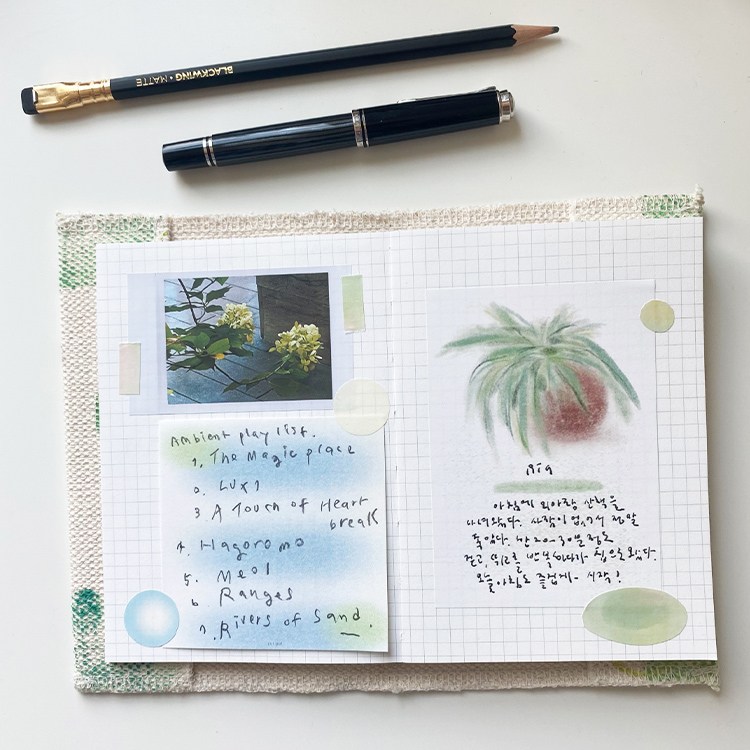 BLACKWING • MATTE
Ambient play list.
1. The Magic place
2. LUX1
3 A Touch of Heart
break
4. Hagoromo
5. Meol
6 Ranges
7. Rivers of Sand.
아침에 리아랑 산책을
다녀왔다. 사람이 없어서 정말
좋았다. 한 20~30분 정도
걷고, 쉬고를 반복하다가 집으로 왔다.
오늘 아침도 즐겁게~ 시작!